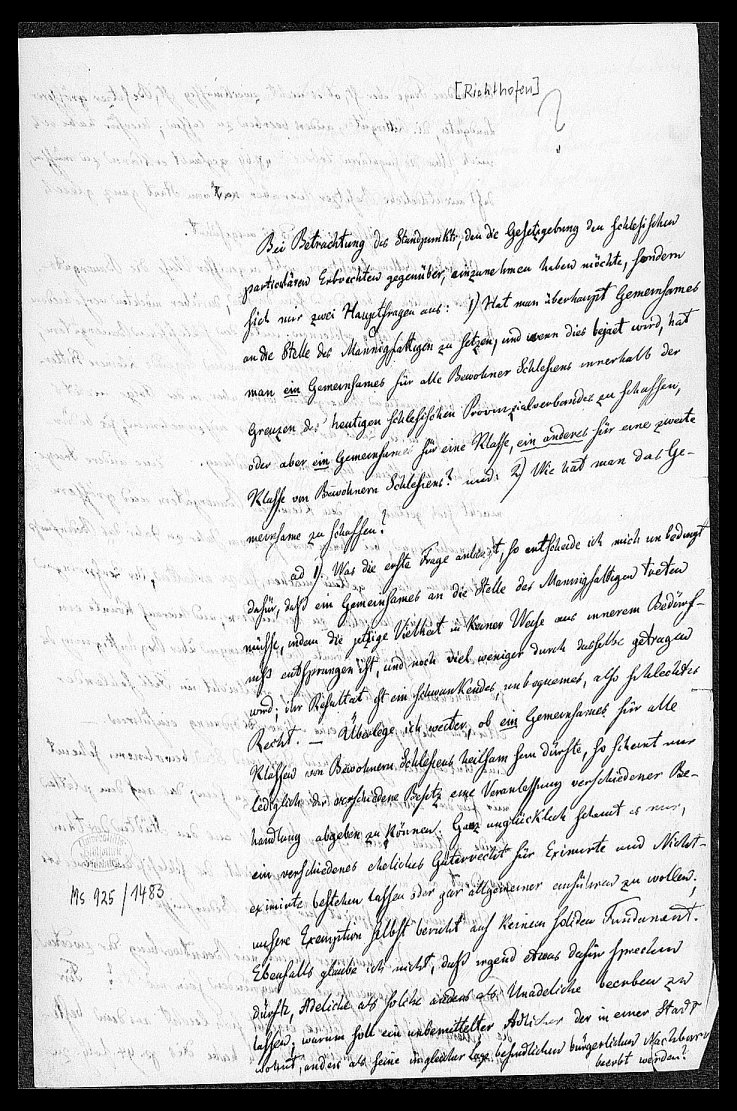 [Richthofen]
?
Bei Betrachtung des Standpunkts, den die Gesetzgebung den schlesischen
particulären Erbrechten gegenüber, einzunehmen haben möchte, sondern
sich mir zwei Hauptfragen aus: 1) Hat man überhaupt Gemeinsames
an die Stelle des Mannigfaltigen zu setzen, und wenn dies bejaet wird, hat
man ein Gemeinsames für alle Bewohner Schlesiens innerhalb der
Grenzen des heutigen schlesischen Provinzialverbandes zu schaffen,
oder aber ein Gemeinsames für eine Klasse, ein anderes für eine zweite
Klasse von Bewohnern Schlesiens? und: 2) Wie hat man das Ge-
meinsame zu schaffen?
ad 1). Was die erste Frage anlangt, so entscheide ich mich unbedingt
dafür, daß ein Gemeinsames an die Stelle des Mannigfaltigen treten
müsse, indem die jetzige Vielheit in keiner Weise aus innerem Bedürf-
niß entsprungen ist, und noch viel weniger durch dasselbe getragen
wird; ihr Resultat ist ein schwankendes, unbequemes, also schlechtes
Recht. — Überlege ich weiter, ob ein Gemeinsames für alle
Klassen von Bewohnern Schlesiens heilsam sein dürfte, so scheint mir
lediglich der verschiedene Besitz eine Veranlassung verschiedener Be-
handlung abgeben zu können. Ganz unglücklich scheint es mir,
ein verschiedenes eheliches Güterrecht für Eximirte und Nicht-
eximirte bestehen lassen oder gar allgemeiner einführen zu wollen;
unsere Exemption selbst beruht auf keinem soliden Fundament.
Ebenfalls glaube ich nicht, daß irgend etwas dafür sprechen
dürfte, Adeliche als solche anders als Unadeliche beerben zu
lassen, warum soll ein unbemittelter Adlicher der in einer Stadt
wohnt, anders als seine in gleicher Lage befindlichen bürgerlichen Nachbarn
beerbt werden?
Ms 925/1483